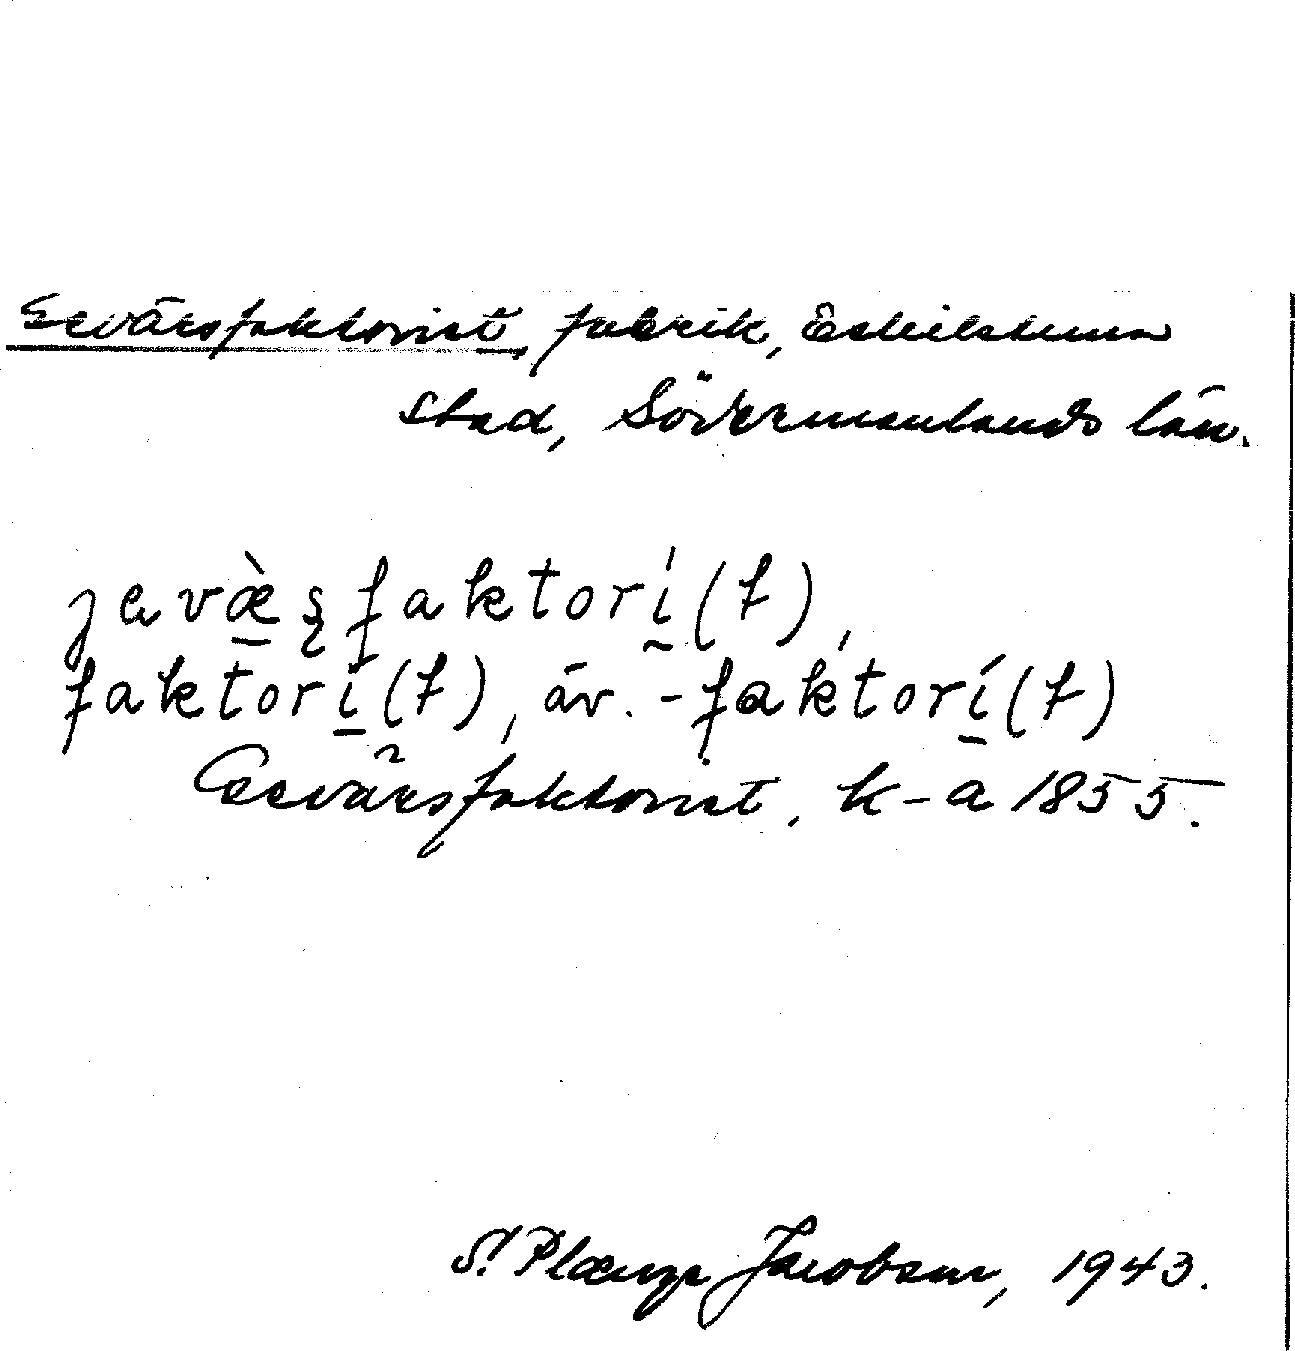 Gevärsfaktoriet, fabrik, Eskilstuna
stad, Södermanlands län.
jevæ̀ʂfaktorí(t),
faktorí(t), äv. -faktorí(t)
Gevärsfaktoriet, k-a 1855.
S. Plænge Jacobson, 1943.